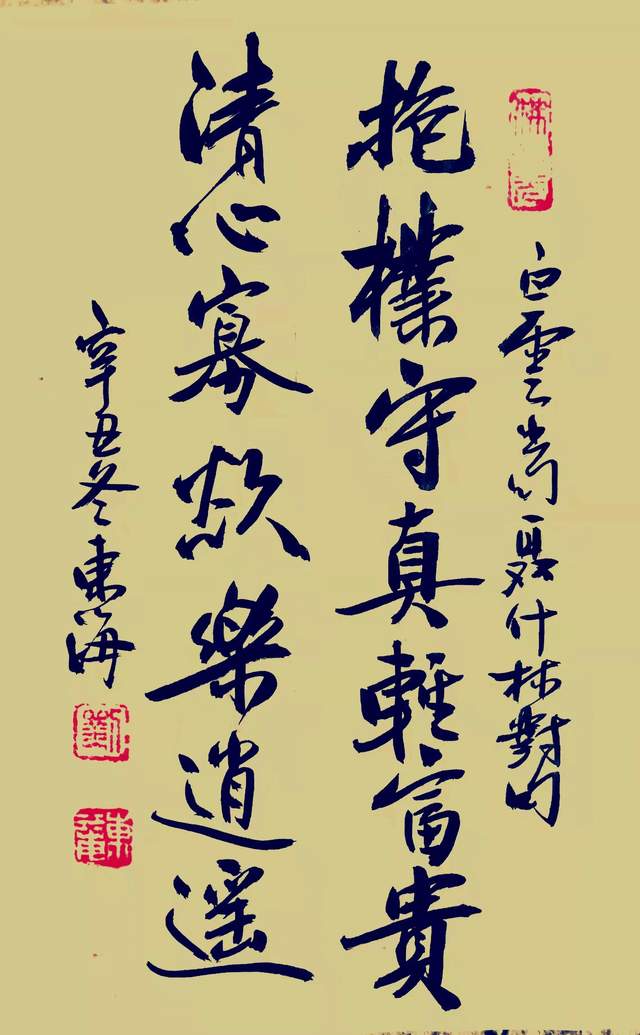 白雲
什林對句
抱樸守真輕富貴
清心寡欲樂逍遥
辛丑冬東海
劉